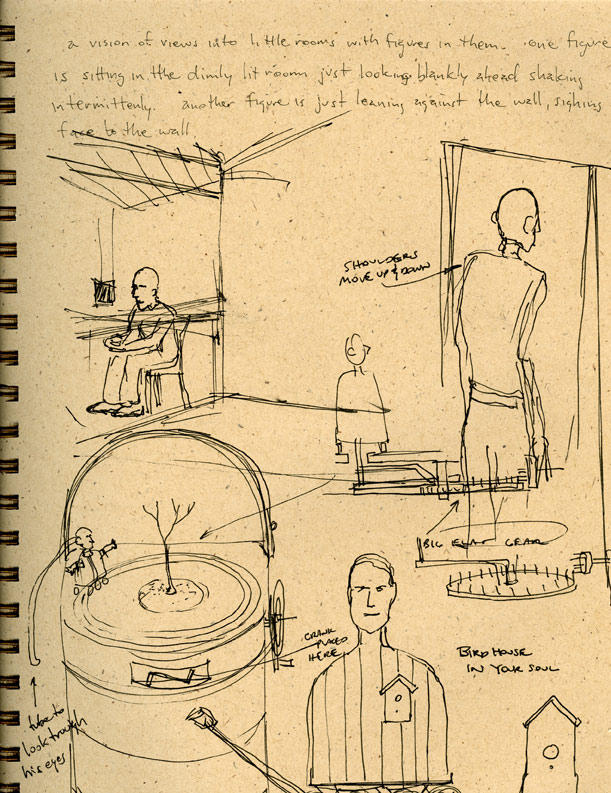 a vision of views into little rooms with figures in them. one figure
is sitting in the dimly lit room just looking blankly ahead shaking
intermittenly. another figure is just leaning against the wall, sighing
face to the wall.
SHOULDERS
MOVE UP & DOWN
BIG FLAT GEAR
CRANK
PLACED
HERE
BIRDHOUSE
IN YOUR SOUL
tube to
look trough
his eyes